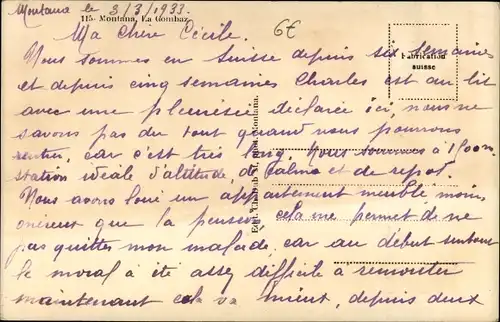 Montana le 3/3/1933.
115. Montana, La Combaz
6€
Ma Chère Cécile.
Fabrication
suisse
Nous sommes en Suisse depuis six semaines
et depuis cinq semaines Charles est au lit
avec une pleurésie déclarée ici, nous ne
savons pas du tout quand nous pourrons
rentrer, car c'est très long. Nous sommes à 1500m
station idéale d'altitude, de calme et de repos.
Nous avons loué un appartement meublé moins
onéreux que la pension cela me permet de ne
pas quitter mon malade, car au début surtout
le moral a été assez difficile à remonter
maintenant cela va mieux, depuis deux